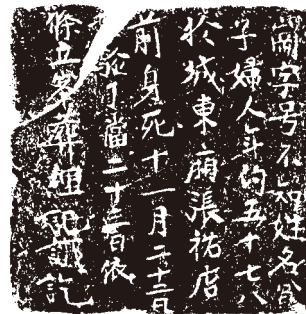 字号不知姓名
子婦人年約五十七八
於城東廂張祐店
前身死十一月二十二日
驗了當二十三日依
條立峯葬埋記識訖